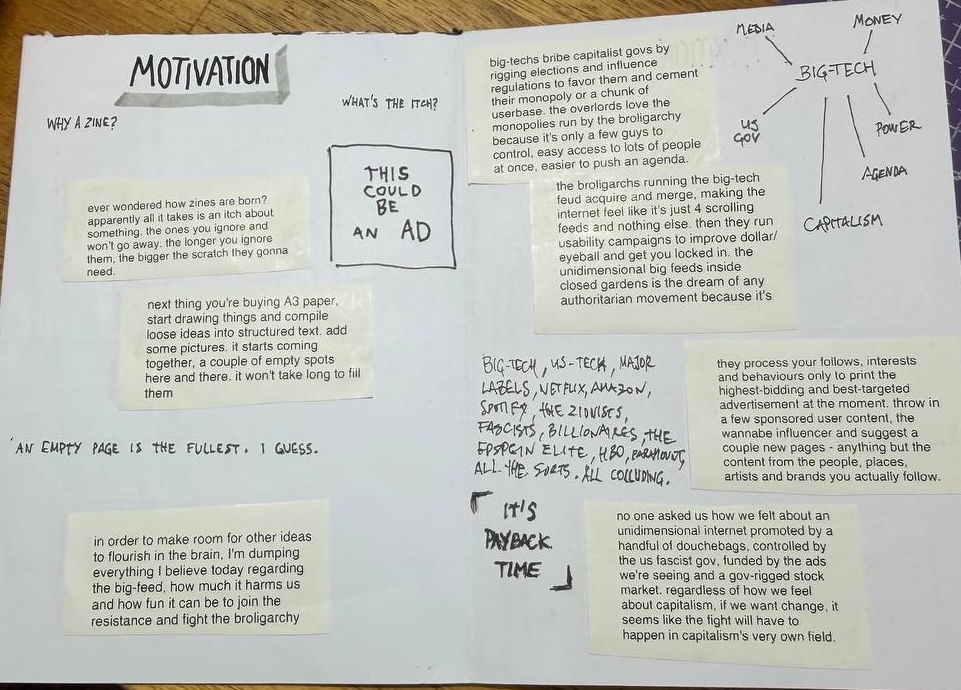 MOTIVATION
WHY A ZINE?
WHAT'S THE ITCH?
THIS
COULD
BE
AN AD
ever wondered how zines are born?
apparently all it takes is an itch about
something. the ones you ignore and
won't go away. the longer you ignore
them, the bigger the scratch they gonna
need.
next thing you're buying A3 paper,
start drawing things and compile
loose ideas into structured text. add
some pictures. it starts coming
together, a couple of empty spots
here and there. it won't take long to fill
them
AN EMPTY PAGE IS THE FULLEST. I GUESS.
in order to make room for other ideas
to flourish in the brain, I'm dumping
everything I believe today regarding
the big-feed, how much it harms us
and how fun it can be to join the
resistance and fight the broligarchy
big-techs bribe capitalist govs by
rigging elections and influence
regulations to favor them and cement
their monopoly or a chunk of
userbase. the overlords love the
monopolies run by the broligarchy
because it's only a few guys to
control, easy access to lots of people
at once, easier to push an agenda.
MEDIA
MONEY
BIG-TECH
US
GOV
POWER
AGENDA
CAPITALISM
the broligarchs running the big-tech
feud acquire and merge, making the
internet feel like it's just 4 scrolling
feeds and nothing else. then they run
usability campaigns to improve dollar/
eyeball and get you locked in. the
unidimensional big feeds inside
closed gardens is the dream of any
authoritarian movement because it's
BIG-TECH, US-TECH, MAJOR
LABELS, NETFLIX, AMAZON,
SPOTIFY, THE ZIONISTS,
FASCISTS, BILLIONAIRES, THE
EPSPEIN ELITE, HBO, PARAMOUNT,
ALL THE SORTS. ALL COLLUDING.
they process your follows, interests
and behaviours only to print the
highest-bidding and best-targeted
advertisement at the moment. throw in
a few sponsored user content, the
wannabe influencer and suggest a
couple new pages - anything but the
content from the people, places,
artists and brands you actually follow.
IT'S
PAYBACK
TIME
no one asked us how we felt about an
unidimensional internet promoted by a
handful of douchebags, controlled by
the us fascist gov, funded by the ads
we're seeing and a gov-rigged stock
market. regardless of how we feel
about capitalism, if we want change, it
seems like the fight will have to
happen in capitalism's very own field.